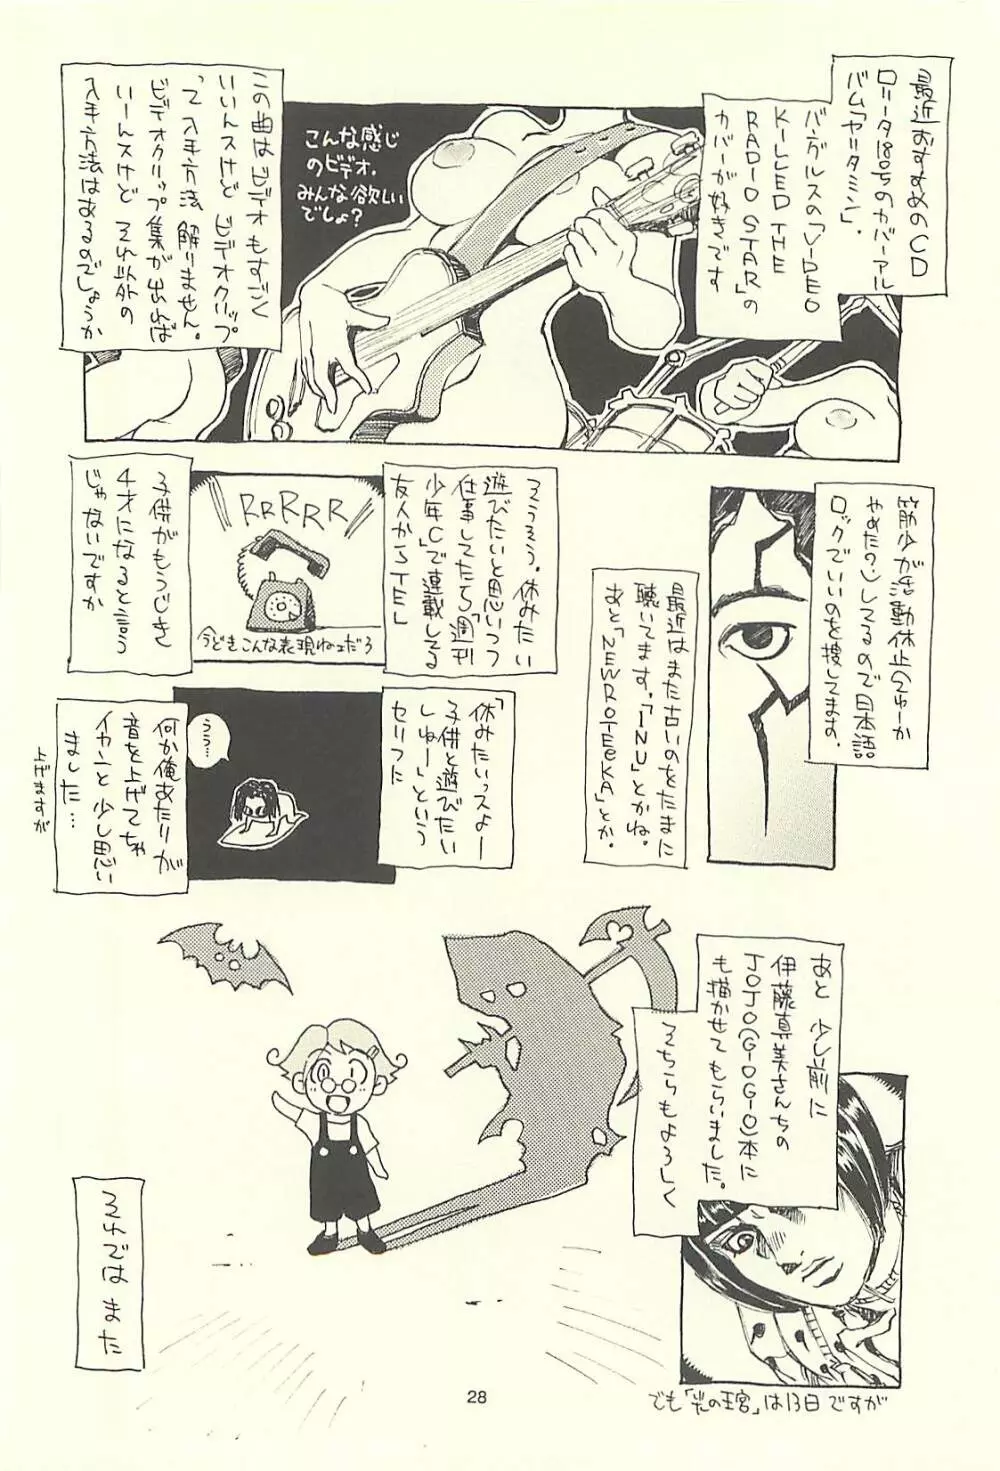 最近おすすめのCD
ロリータ18号のカバーアル
バム「ヤリタミン」。
バグルスの「VIDEO
KILLED THE
RADIO STAR」の
カバーが好きです
こんな感じ
のビデオ。
みんな欲しい
でしょ?
この曲はビデオもすごく
いいんスけど ビデオクリップ
って入手方法解りません。
ビデオクリップ集が出れば
いーんスけど それ以外の
入手方法はあるのでしょうか
筋少が活動休止(つゆーか
やめた?)してるので日本語
ロックでいいのを捜してます。
最近はまた古いのをたまに
聴いてます。「INU」とかね。
あと「NEWROTEeKA」とか。
そうそう。休みたい
遊びたいと思いつつ
仕事してたら「週刊
少年C」で連載してる
友人からTEL
RRRRR
今どきこんな表現ねェだろ
子供がもうじき
4才になると言う
じゃないですか
「休みたいっスよー
子供と遊びたい
しゅー」という
セリフに
うう…
何か俺あたりが
音を上げてちゃ
イカンと少し思い
ました…
上げますが
あと 少し前に
伊藤真美さんちの
JOJO(GIOGIO)本に
も描かせてもらいました。
そちらもよろしく
でも「光の王宮」は13日ですが
それでは また
28